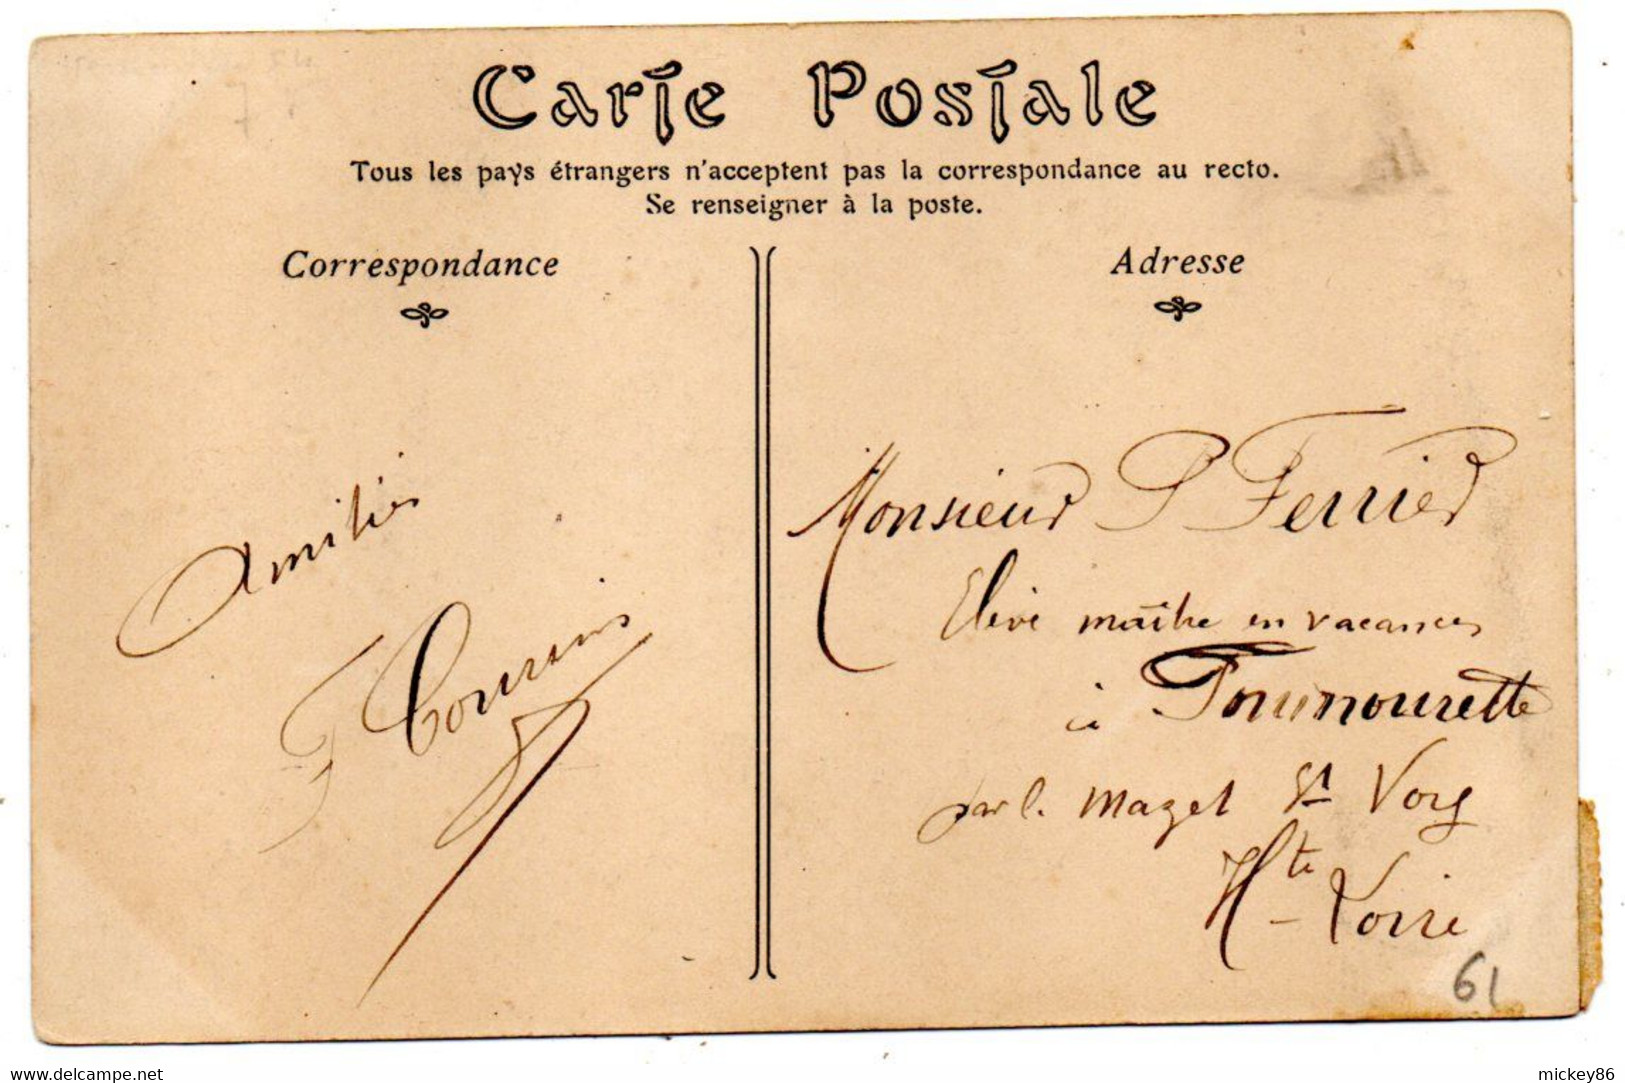 Carte Postale
Tous les pays étrangers n'acceptent pas la correspondance au recto.
Se renseigner à la poste.
Correspondance
Adresse
Amitiés
F
Monsieur P Ferrier
Elève maître en vacances
à
par l. Mazet St Voy
Hte Loire
61
www.delcampe.net
mickey86